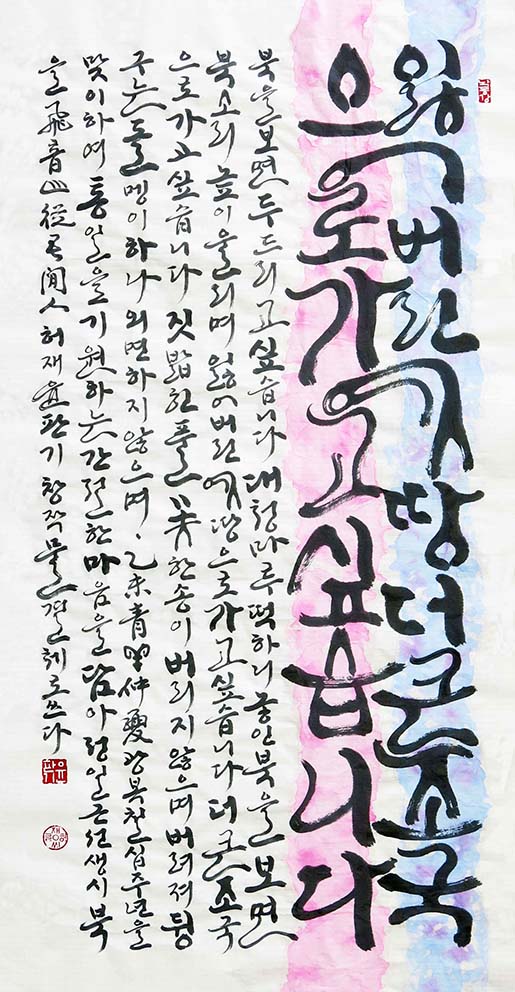 잃어버린 옛 땅 더 큰 조국
으로 가고 싶습니다
북을 보면 두드리고 싶습니다 대청마루 떡하니 놓인 북을 보면
북소리 높이 울리며 잃어버린 옛 땅으로 가고 싶습니다 더 큰 조국
으로 가고 싶습니다 짓밟힌 풀꽃 한 송이 버리지 않으며 버려져 뒹
구는 돌멩이 하나 외면하지 않으며 · 乙未青羊仲夏 광복칠십주년을
맞이하여 통일을 기원하는 간절한 마음을 담아 정일근 선생 시 북
을 飛音山 閒人 허재 윤판기 창작 물결체로 쓰다